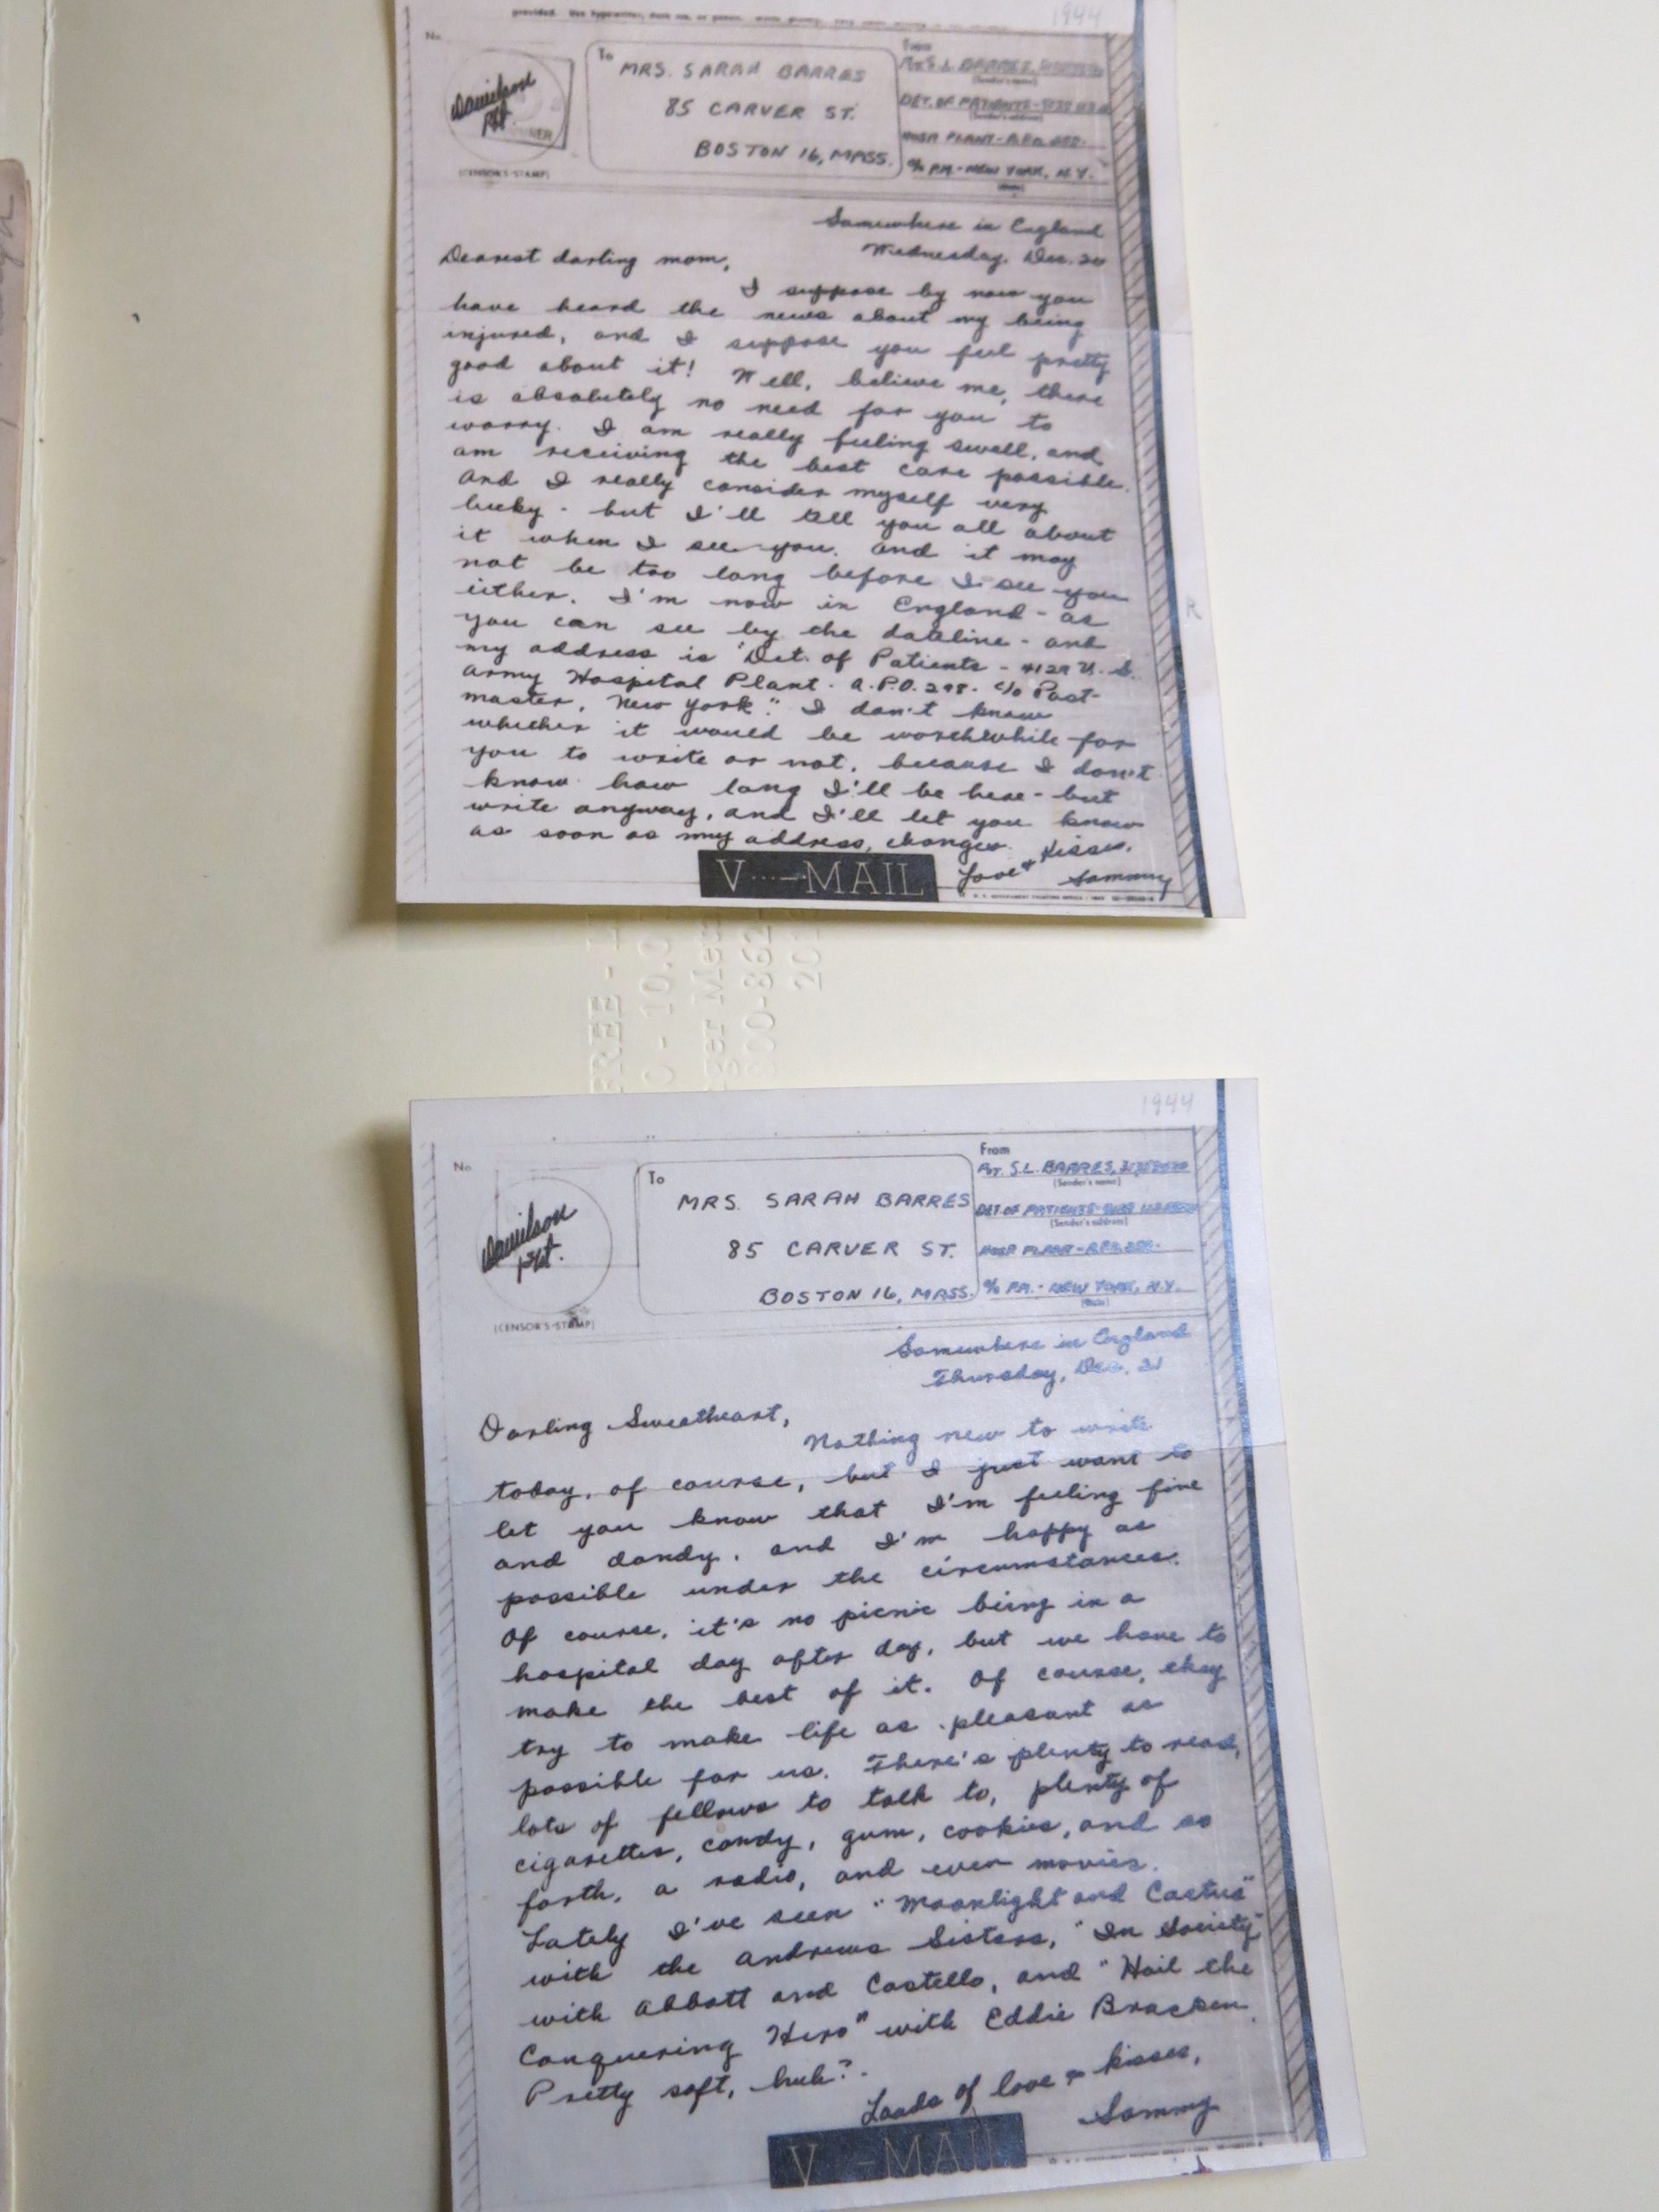 1944
No.
To
MRS. SARAH BARRES
85 CARVER ST.
BOSTON 16, MASS.
From
S. L. BARRES,
(Sender's name)
DET. OF PATIENTS -
(Sender's address)
HOSP. PLANT - A.P.O.
c/o P.M. - NEW YORK, N.Y.
(Date)
Danielson
(CENSOR'S STAMP)
Somewhere in England
Wednesday, Dec. 20
Dearest darling mom,
I suppose by now you
have heard the news about my being
injured, and I suppose you feel pretty
good about it! Well, believe me, there
is absolutely no need for you to
worry. I am really feeling swell, and
am receiving the best care possible.
And I really consider myself very
lucky - but I'll tell you all about
it when I see you. And it may
not be too long before I see you
either. I'm now in England - as
you can see by the dateline - and
my address is "Det. of Patients - U. S.
Army Hospital Plant. A.P.O. 298. c/o Post-
master, New York." I don't know
whether it would be worthwhile for
you to write or not, because I don't
know how long I'll be here - but
write anyway, and I'll let you know
as soon as my address changes.
Love + Kisses,
Sammy
V...-MAIL
FREE -
- 10.0
ger
00-862
20
1944
No.
To
MRS. SARAH BARRES
85 CARVER ST.
BOSTON 16, MASS.
From
Pvt. S. L. BARRES,
(Sender's name)
DET. OF PATIENTS -
(Sender's address)
HOSP. PLANT - A.P.O.
c/o P.M. - NEW YORK, N.Y.
(Date)
Danielson
(CENSOR'S STAMP)
Somewhere in England
Thursday, Dec. 21
Darling Sweetheart,
Nothing new to write
today, of course, but I just want to
let you know that I'm feeling fine
and dandy, and I'm happy as
possible under the circumstances.
Of course, it's no picnic being in a
hospital day after day, but we have to
make the best of it. Of course, they
try to make life as pleasant as
possible for us. There's plenty to read,
lots of fellows to talk to, plenty of
cigarettes, candy, gum, cookies, and so
forth, a radio, and even movies.
Lately I've seen "Moonlight and Cactus"
with the Andrews Sisters, "In Society"
with Abbott and Costello, and "Hail the
Conquering Hero" with Eddie Bracken.
Pretty soft, huh?
Loads of love + kisses,
Sammy
V -MAIL